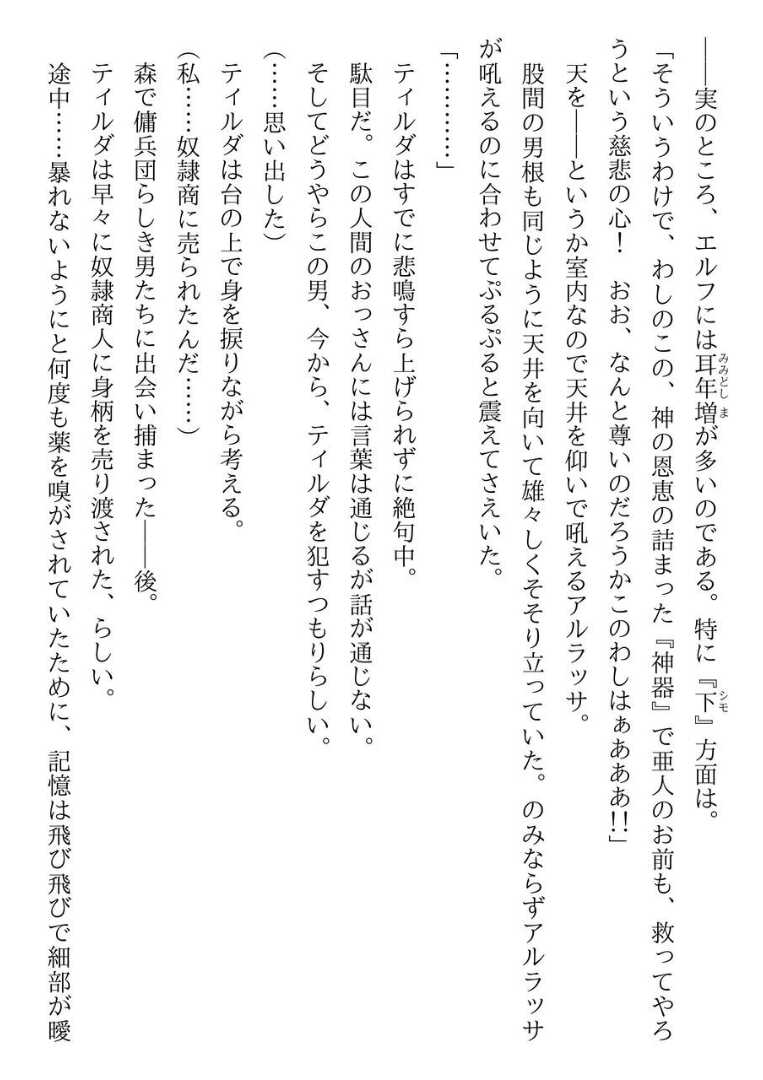 ――実のところ、エルフには耳年増が多いのである。特に『下』方面は。
「そういうわけで、わしのこの、神の恩恵の詰まった『神器』で亜人のお前も、救ってやろ
うという慈悲の心！　おお、なんと尊いのだろうかこのわしはぁあああ!!」
天を――というか室内なので天井を仰いで吼えるアルラッサ。
股間の男根も同じように天井を向いて雄々しくそそり立っていた。のみならずアルラッサ
が吼えるのに合わせてぷるぷると震えてさえいた。
「…………」
ティルダはすでに悲鳴すら上げられずに絶句中。
駄目だ。この人間のおっさんには言葉は通じるが話が通じない。
そしてどうやらこの男、今から、ティルダを犯すつもりらしい。
（……思い出した）
ティルダは台の上で身を捩りながら考える。
（私……奴隷商に売られたんだ……）
森で傭兵団らしき男たちに出会い捕まった――後。
ティルダは早々に奴隷商人に身柄を売り渡された、らしい。
途中……暴れないようにと何度も薬を嗅がされていたために、記憶は飛び飛びで細部が曖